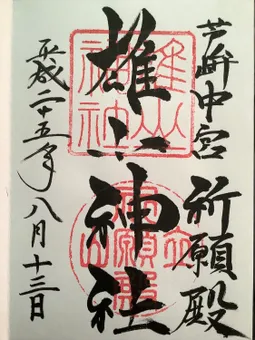 芦峅中宮 祈願殿
雄山神社
平成二十五年八月十三日
雄山神社
立山祈願殿